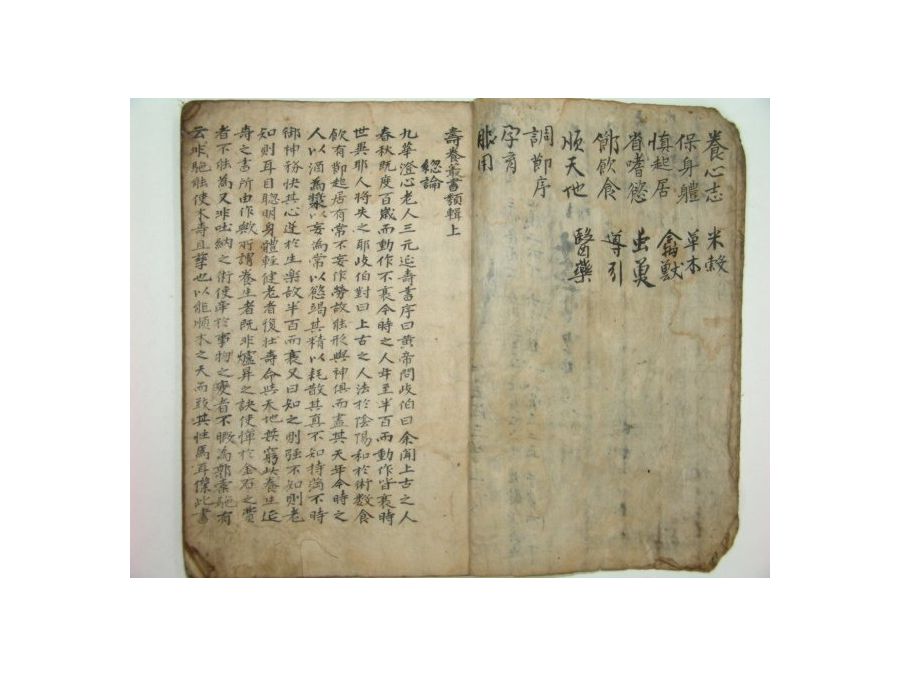 養心志 米穀
保身體 草木
慎起居 禽獸
省嗜慾 虫魚
節飲食 導引
順天地 醫藥
調節序
孕育
服用
壽養叢書類輯上
總論
九華澄心老人三元延壽書序曰黃帝問歧伯曰余聞上古之人
春秋既度百歲而動作不衰今時之人年至半百而動作皆衰時
世異耶人將失之耶歧伯對曰上古之人法於陰陽和於術數食
飲有節起居有常不妄作勞故能形與神俱而盡其天年今時之
人以酒為漿以妄為常以慾竭其精以耗散其真不知持滿不時
御神務快其心逆於生樂故半百而衰又曰知之則强不知則老
知則耳目聰明身體輕健老者復壯壽命與天地無窮此養生延
壽之書所由作歟所謂養生者既非爐鼎之訣使憚於金石之費
者不能為又非吐納之術使牽於事物之變者不暇為郭橐駞有
云非駞能使木壽且孳也以能順木之天而致其性焉耳僕此書